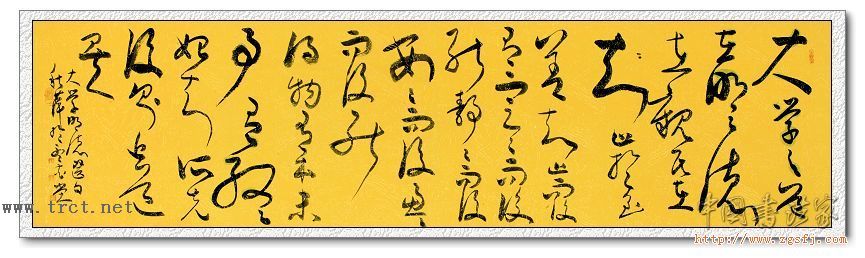 大学之道
在明明德
在親民在
止於至
善知止而后
有定定而后
能静静而后
安安而后慮慮
而后能
得物有本末
事有終
始知所先
后则近道
矣
www.trct.net
中国書法家
http://www.zgsfj.com